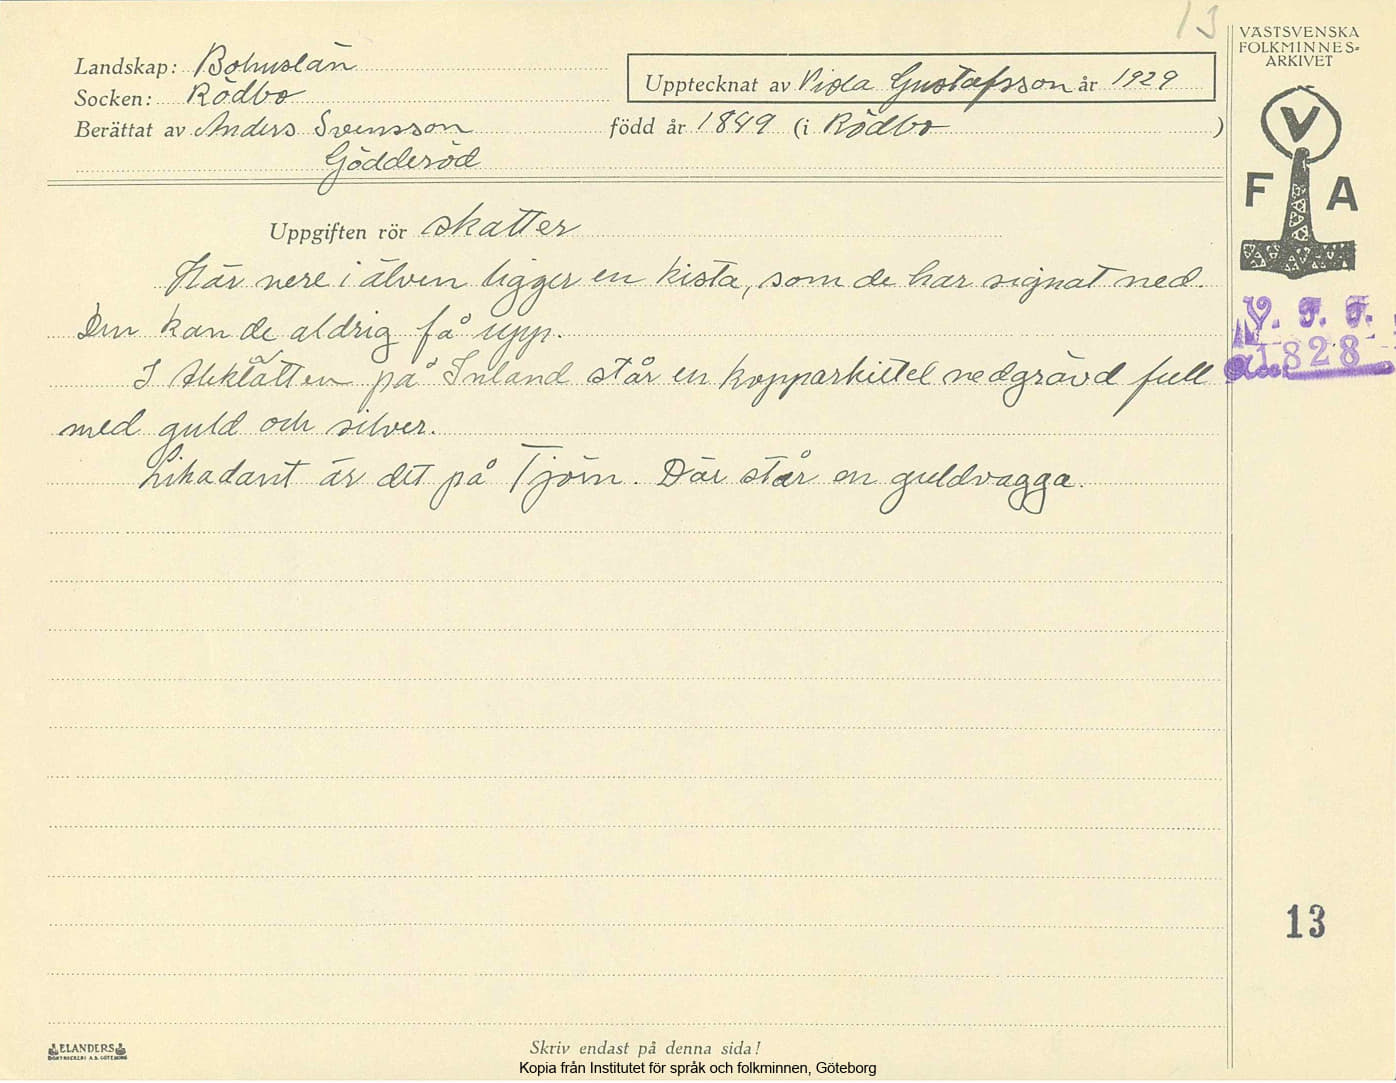 13
VÄSTSVENSKA
FOLKMINNES-
ARKIVET
Landskap: Bohuslän
Socken: Rödbo
Upptecknat av Viola Gustafsson år 1929
Berättat av Anders Svensson född år 1849 (i Rödbo )
Gödderöd
V
F A
Uppgiften rör skatter
Här nere i älven ligger en kista, som de har signat ned.
Den kan de aldrig få upp.
V. F. F.
Acc. 1828
I på Inland står en kopparkittel nedgrävd full
med guld och silver.
Likadant är det på Tjörn. Där står en guldvagga.
13
ELANDERS
BOKTRYCKERI A.B. GÖTEBORG
Skriv endast på denna sida!
Kopia från Institutet för språk och folkminnen, Göteborg